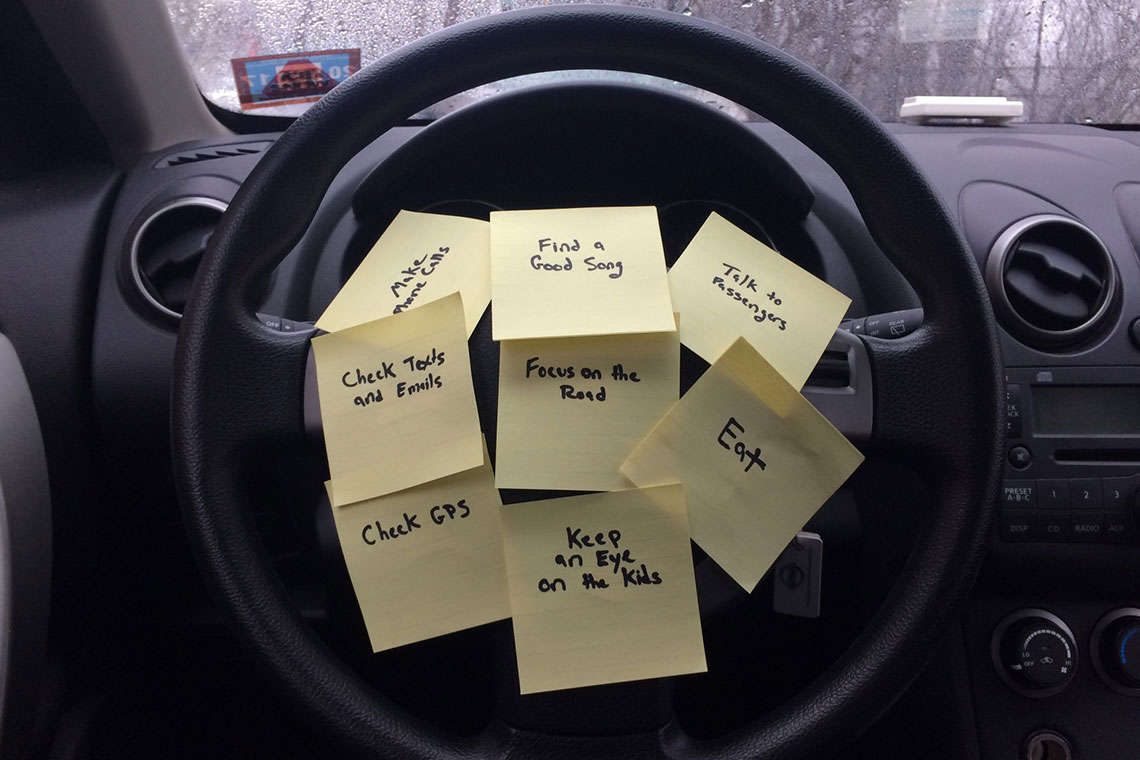 Make
Phone Calls
Find a
Good Song
Talk to
Passengers
Check Texts
and Emails
Focus on the
Road
Eat
Check GPS
Keep
an Eye
on the Kids
OFF
OFF
REAR
PRESET
A·B·C
1
2
3
DISP
CD
RADIO
AUX
LO
HI
OFF